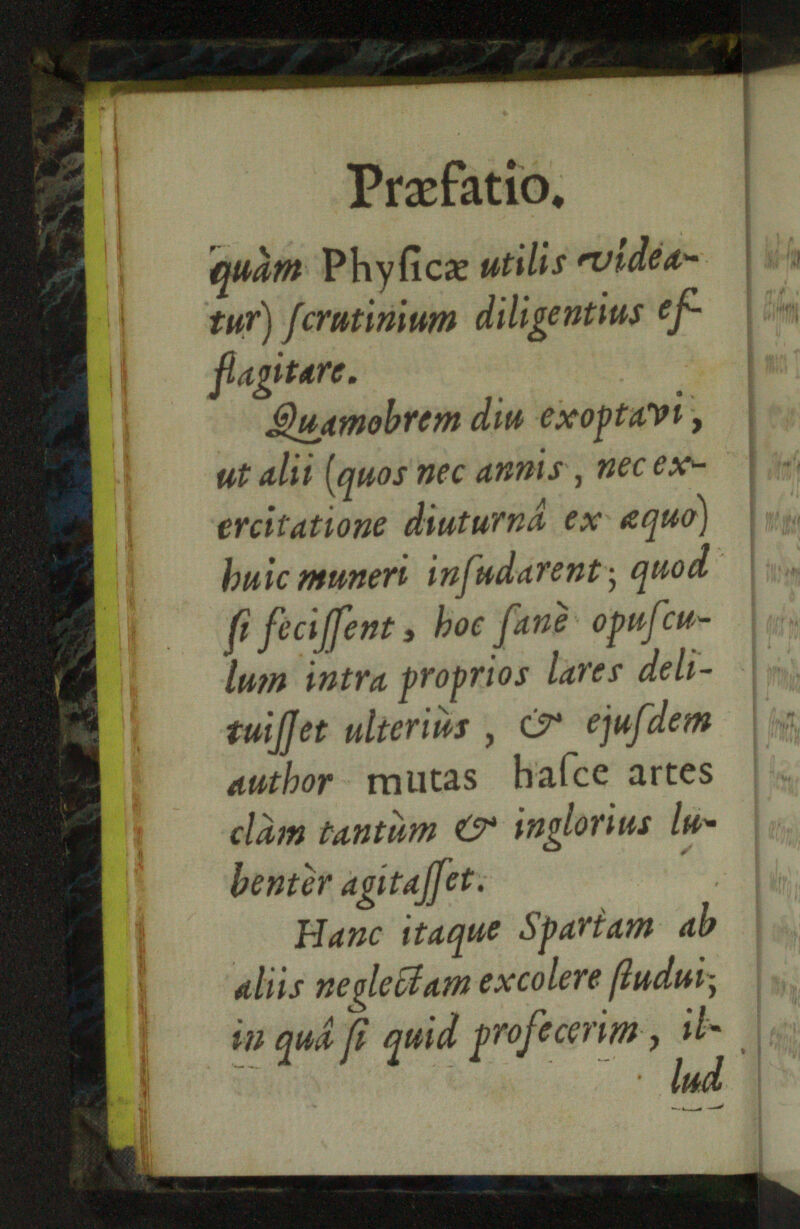 Præfatio.
quàm Phyſicæ utilis videa-
tur) ſcrutinium diligentius ef-
flagitare.
Quamobrem diu exoptavi,
ut alii (quos nec annis, nec ex-
ercitatione diuturnâ ex æquo)
huic muneri inſudarent; quod
ſi feciſſent, hoc ſanè opuſcu-
lum intra proprios lares deli-
tuiſſet ulteriùs, & ejuſdem
author mutas haſce artes
clàm tantùm & inglorius lu-
bentèr agitaſſet.
Hanc itaque Spartam ab
aliis neglectam excolere ſtudui;
in quâ ſi quid profecerim, il-
lud